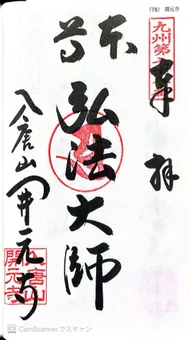 (78) 開元寺
九州第
奉拝
本尊
弘法大師
入唐山 開元寺
唐山
開元寺
CS CamScannerでスキャン